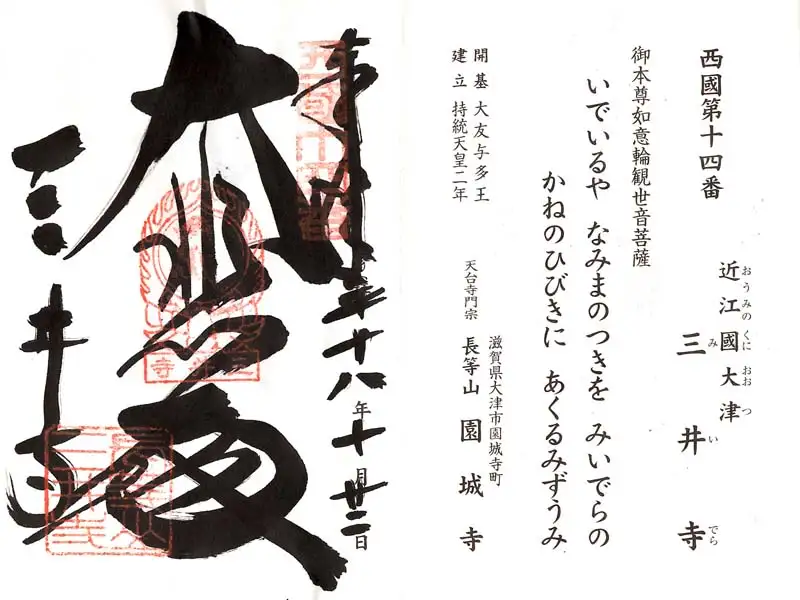 西國第十四番
おうみの くに おおつ
近江國大津
みいでら
三井寺
御本尊如意輪観世音菩薩
いでいるや なみまのつきを みいでらの
かねのひびきに あくるみずうみ
開基 大友与多王
建立 持統天皇二年
滋賀県大津市園城寺町
天台寺門宗 長等山 園城寺
奉拝 平成十八年十月廿二日
西国十四番
大悲殿
三井寺